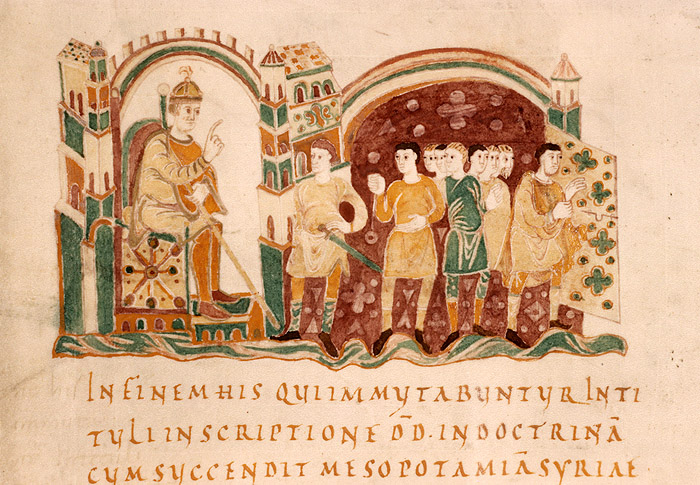 IN FINEM HIS QUI IMMUTABUNTUR INTI
TULI INSCRIPTIONE D̄D̄. IN DOCTRINĀ
CUM SUCCENDIT MESOPOTAMIĀ SYRIAE